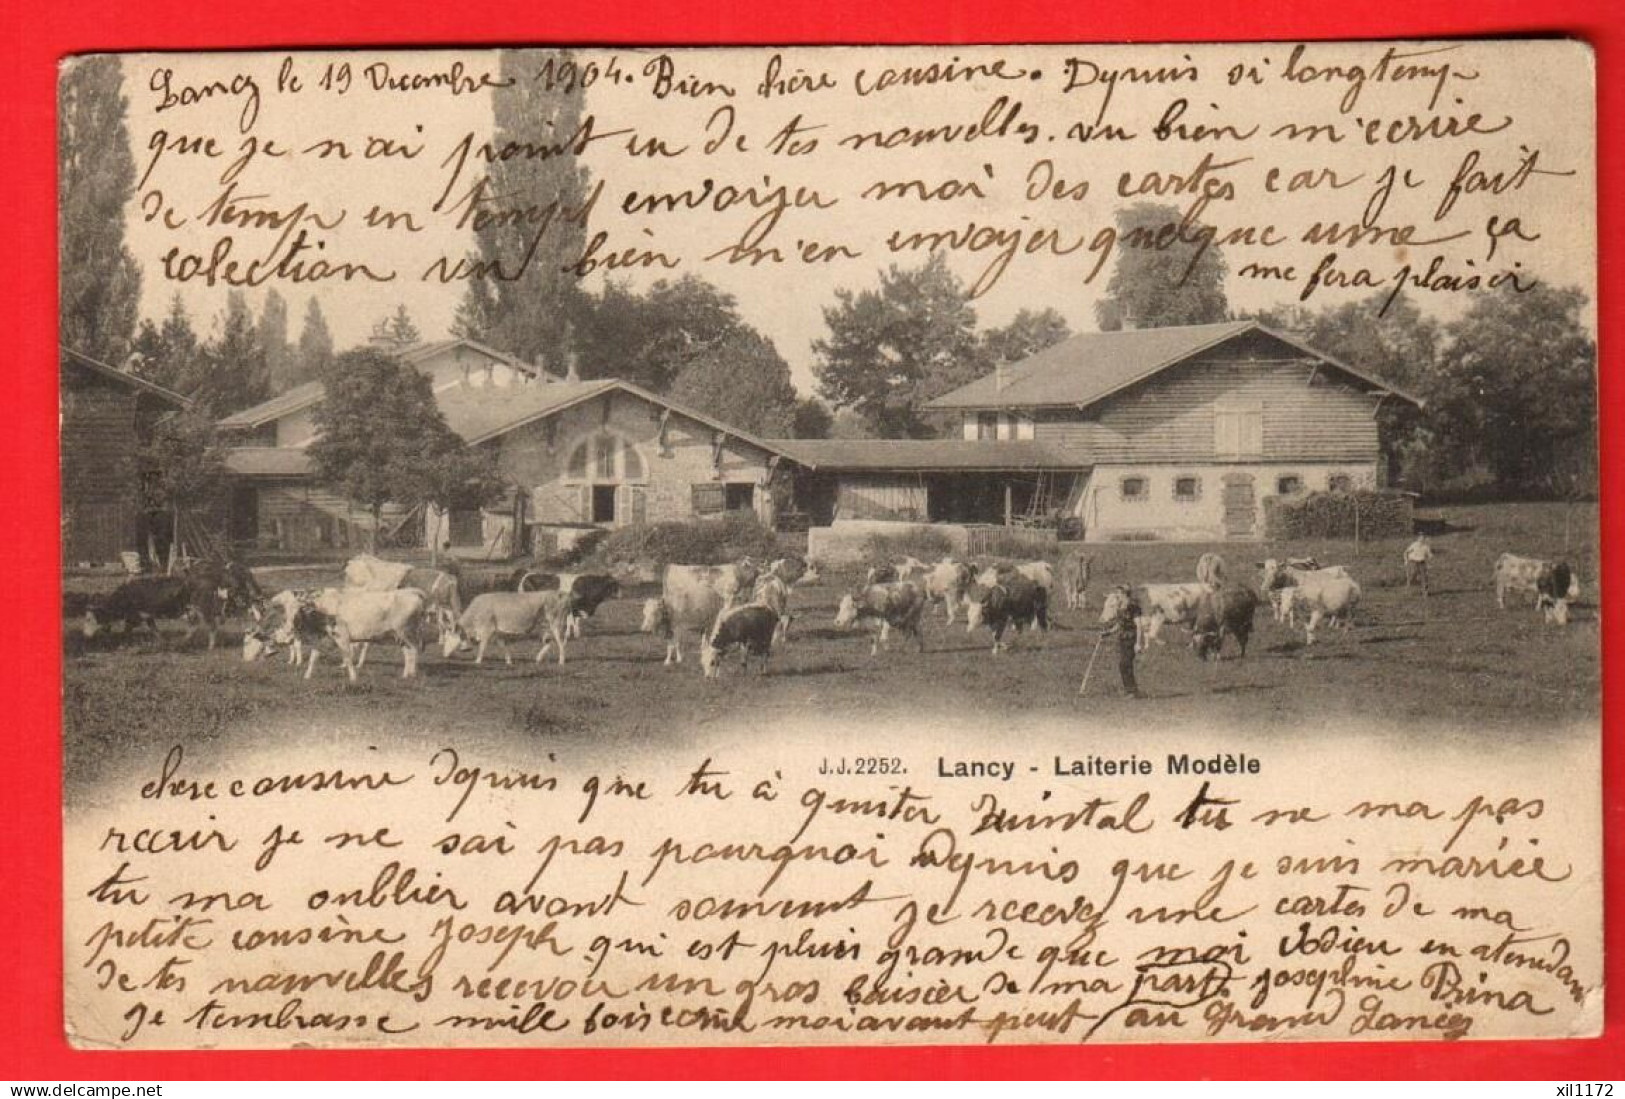 Lancy le 19 Décembre 1904. Bien chère cousine. Depuis si longtemp
que je n'ai point eu de tes nouvelles. vu bien m'ecrire
de temp en temps envoiyer moi des cartes car je fait
colection vu bien m'en envoyer quelque une ça
me fera plaisir
J.J.2252. Lancy - Laiterie Modèle
chere cousine depuis que tu à quiter tu ne ma pas
recrir je ne sai pas pourquoi depuis que je suis mariée
tu ma oublier avant souvent je recevez une cartes de ma
petite cousine Joseph qui est pluis grande que moi en atendam
de tes nouvelles recevoir un gros baisier de ma part Josephine Prina
je tembrasse mille fois ecrire moi avant peut au Grand Lancy
delcampe.net
xil1172